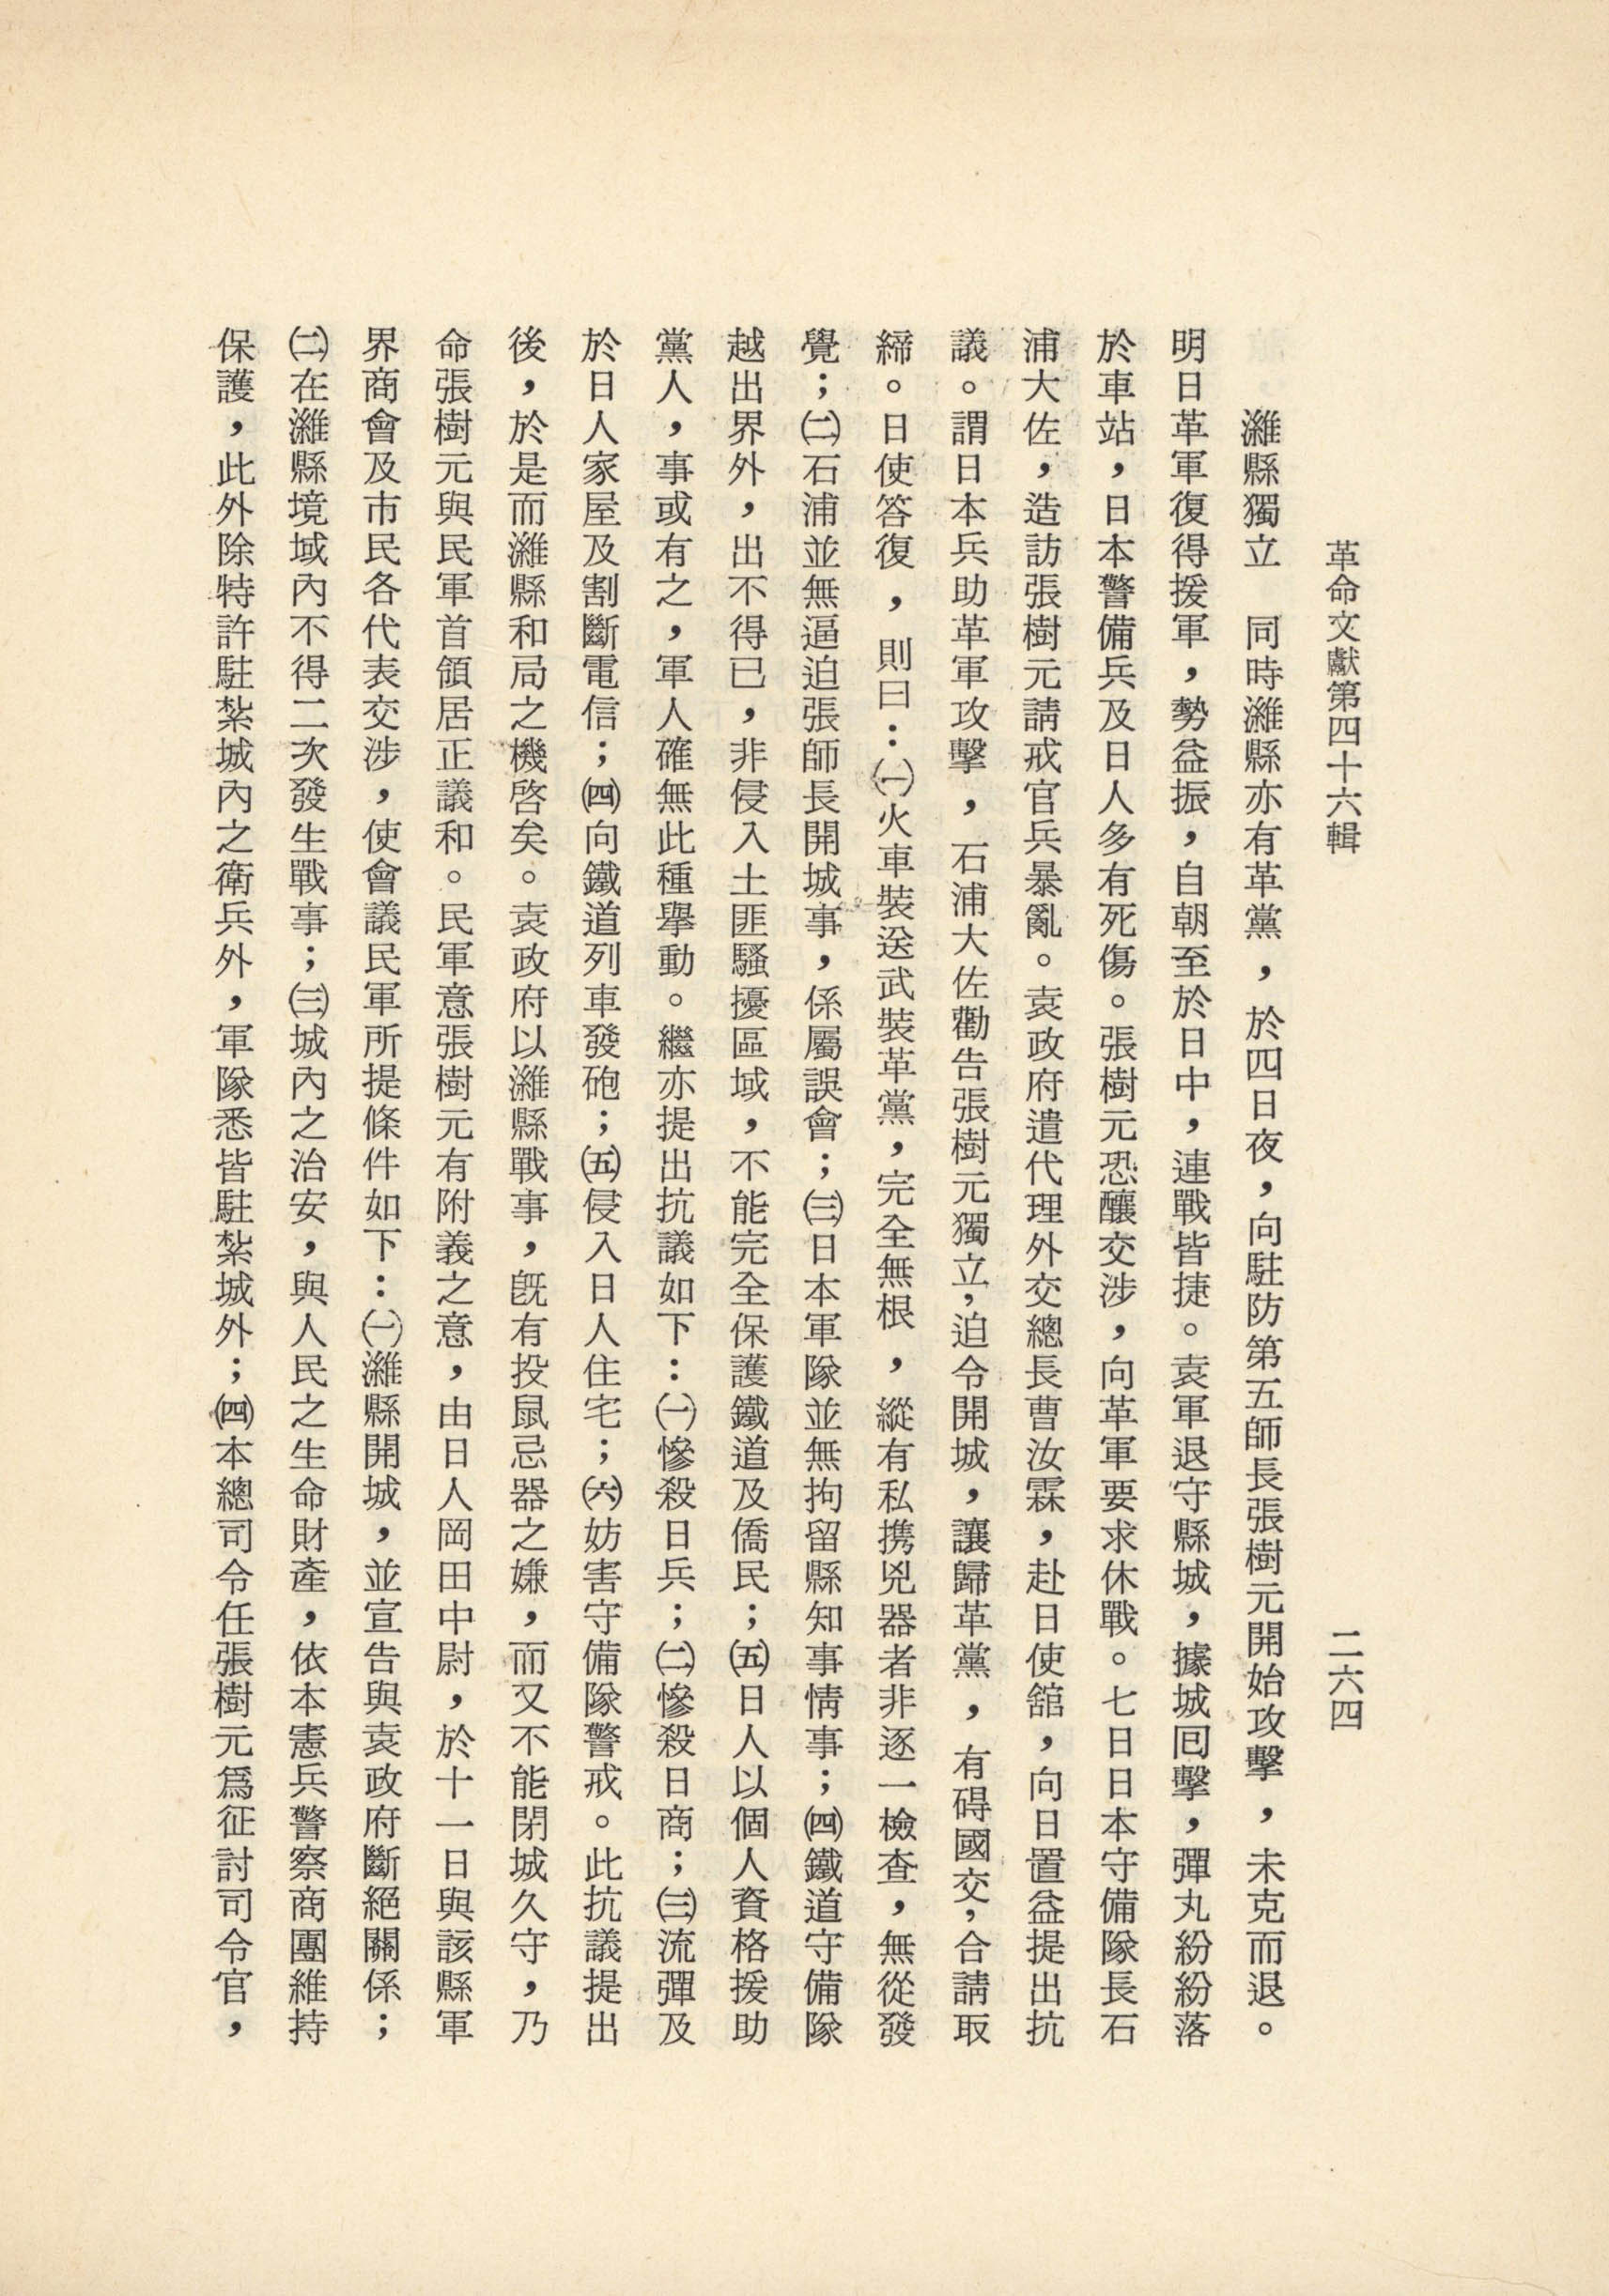 革命文獻第四十六輯
二六四
濰縣獨立　同時濰縣亦有革黨，於四日夜，向駐防第五師長張樹元開始攻擊，未克而退。
明日革軍復得援軍，勢益振，自朝至於日中，連戰皆捷。袁軍退守縣城，據城回擊，彈丸紛紛落
於車站，日本警備兵及日人多有死傷。張樹元恐釀交涉，向革軍要求休戰。七日日本守備隊長石
浦大佐，造訪張樹元請戒官兵暴亂。袁政府遣代理外交總長曹汝霖，赴日使舘，向日置益提出抗
議。謂日本兵助革軍攻擊，石浦大佐勸告張樹元獨立，迫令開城，讓歸革黨，有碍國交，合請取
締。日使答復，則曰：㈠火車裝送武裝革黨，完全無根，縱有私携兇器者非逐一檢查，無從發
覺；㈡石浦並無逼迫張師長開城事，係屬誤會；㈢日本軍隊並無拘留縣知事情事；㈣鐵道守備隊
越出界外，出不得已，非侵入土匪騷擾區域，不能完全保護鐵道及僑民；㈤日人以個人資格援助
黨人，事或有之，軍人確無此種舉動。繼亦提出抗議如下：㈠慘殺日兵；㈡慘殺日商；㈢流彈及
於日人家屋及割斷電信；㈣向鐵道列車發砲；㈤侵入日人住宅；㈥妨害守備隊警戒。此抗議提出
後，於是而濰縣和局之機啓矣。袁政府以濰縣戰事，既有投鼠忌器之嫌，而又不能閉城久守，乃
命張樹元與民軍首領居正議和。民軍意張樹元有附義之意，由日人岡田中尉，於十一日與該縣軍
界商會及市民各代表交涉，使會議民軍所提條件如下：㈠濰縣開城，並宣告與袁政府斷絕關係；
㈡在濰縣境域內不得二次發生戰事；㈢城內之治安，與人民之生命財產，依本憲兵警察商團維持
保護，此外除特許駐紮城內之衛兵外，軍隊悉皆駐紮城外；㈣本總司令任張樹元爲征討司令官，